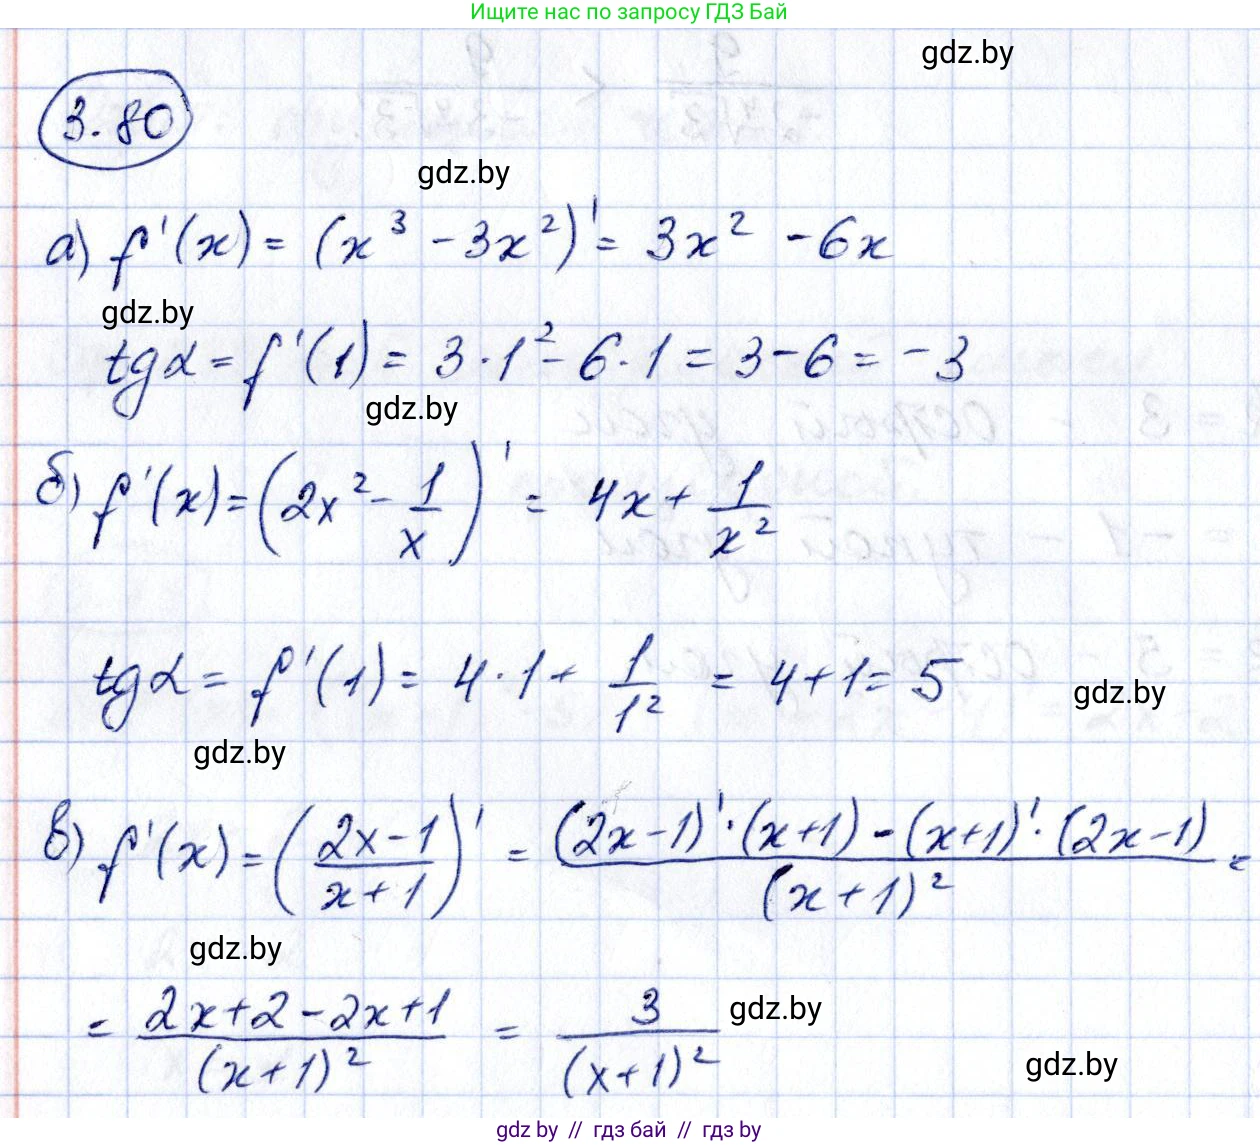 Ищите нас по запросу ГДЗ Бай
gdz.by
3.80
gdz.by
а) f'(x) = (x³ - 3x²)' = 3x² - 6x
gdz.by
tgα = f'(1) = 3·1² - 6·1 = 3 - 6 = -3
gdz.by
б) f'(x) = (2x² - 1/x)' = 4x + 1/x²
tgα = f'(1) = 4·1 + 1/1² = 4+1 = 5
gdz.by
gdz.by
в) f'(x) = ((2x-1)/(x+1))' = ((2x-1)'·(x+1) - (x+1)'·(2x-1))/(x+1)² =
gdz.by
= (2x+2-2x+1)/(x+1)² = 3/(x+1)²
gdz.by
gdz.by
gdz by // гдз бай // гдз by